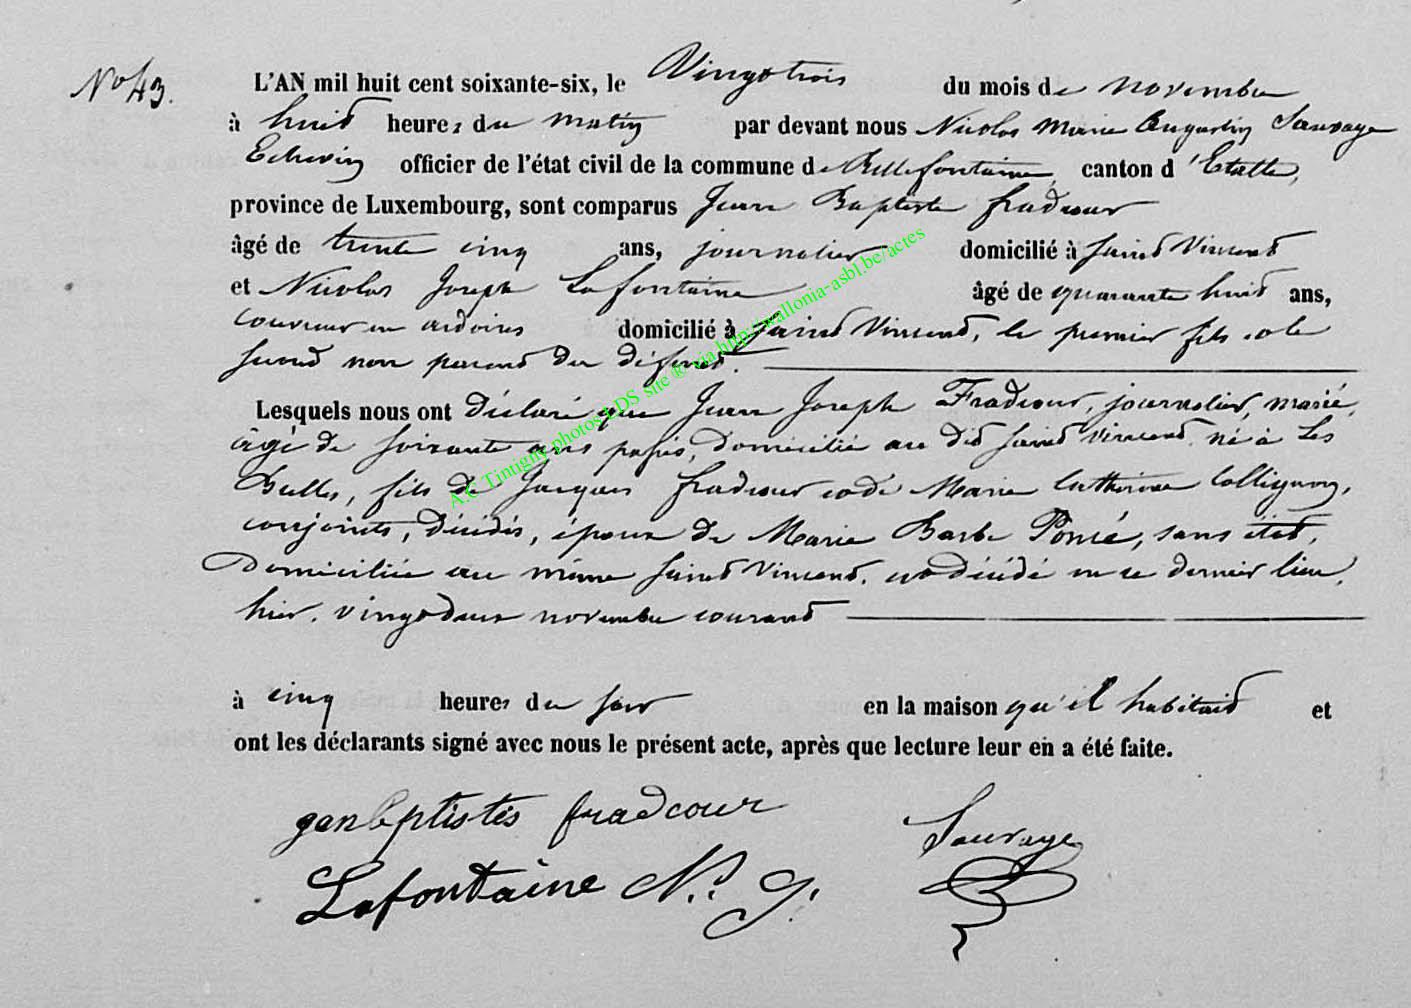 No 43.
L'AN mil huit cent soixante-six, le Vingt trois du mois de novembre
à huit heures du matin par devant nous Nicolas Marie Augustin Sauvage
Echevin officier de l'état civil de la commune de Bellefontaine, canton d'Etalle,
province de Luxembourg, sont comparus Jean Baptiste Fradcour
âgé de trente cinq ans, journalier domicilié à Saint Vincent
et Nicolas Joseph Lafontaine âgé de quarante huit ans,
couvreur en ardoises domicilié à Saint Vincent, le premier fils et le
second non parent du défunt.
Lesquels nous ont déclaré que Jean Joseph Fradcour, journalier, marié,
âgé de soixante ans passés, domicilié au dit Saint Vincent né à Les
Bulles, fils de Jacques Fradcour et de Marie Catherine Collignon,
conjoints, décédés, époux de Marie Barbe Poncé, sans état,
Domiciliée au même Saint Vincent, est décédé en ce dernier lieu,
hier, vingt deux novembre courant
à cinq heures du soir en la maison qu'il habitait et
ont les déclarants signé avec nous le présent acte, après que lecture leur en a été faite.
gan Bptistes fradcour
Sauvage
Lafontaine N. J.
A.C Tintigny photos LDS site ® via http://wallonia-asbl.be/actes